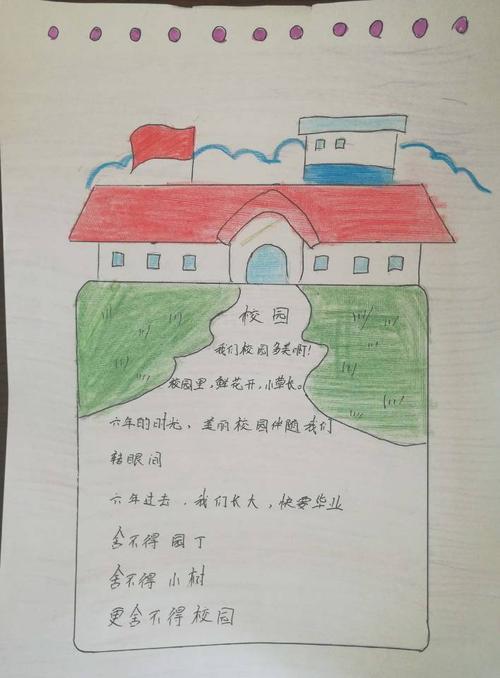 校园
我们校园多美啊!
校园里,鲜花开,小草长。
六年的时光,美丽校园伴随我们
转眼间
六年过去,我们长大,快要毕业
舍不得园丁
舍不得小树
更舍不得校园